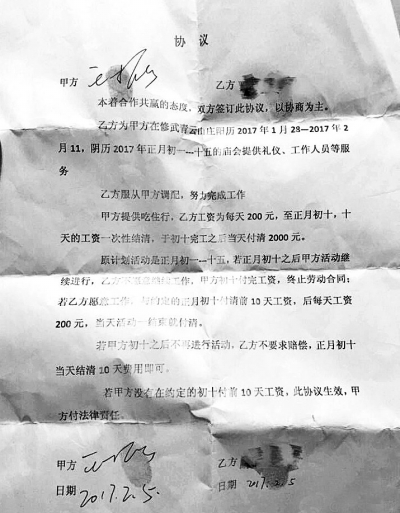 协 议
甲方 乙方
本着合作共赢的态度,双方签订此协议,以协商为主。
乙方为甲方在修武青云山庄阳历 2017 年 1 月 28—2017 年 2
月 11,阴历 2017 年正月初一---十五的庙会提供礼仪、工作人员等服
务
乙方服从甲方调配,努力完成工作
甲方提供吃住行,乙方工资为每天 200 元,至正月初十,十
天的工资一次性结清,于初十完工之后当天付清 2000 元。
原计划活动是正月初一---十五,若正月初十之后甲方活动继
续进行,乙方不愿意继续工作,甲方初十付完工资,终止劳动合同;
若乙方愿意工作,与约定的正月初十付清前 10 天工资,后每天工资
200 元,当天活动一结束就付清。
若甲方初十之后不再进行活动,乙方不要求赔偿,正月初十
当天结清 10 天费用即可。
若甲方没有在约定的初十付前 10 天工资,此协议生效,甲
方付法律责任。
甲方 乙方
日期 2017.2.5. 日期 2017.2.5